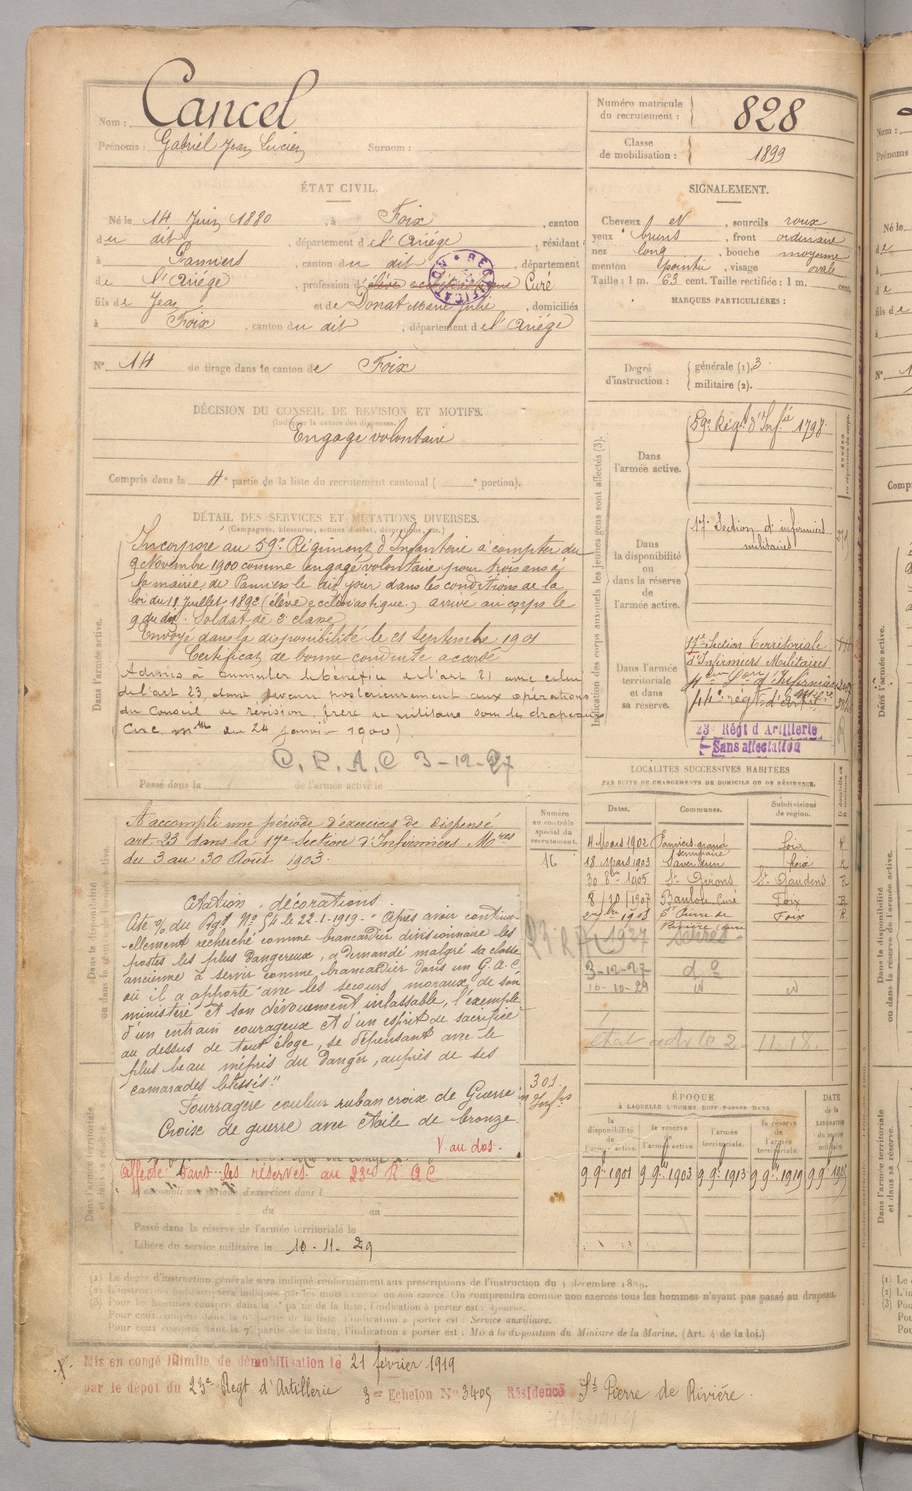 Nom : Cancel
Prénoms : Gabriel Jean Lucien Surnom :
Numéro matricule du recrutement : 828
Classe de mobilisation : 1899
ÉTAT CIVIL.
Né le 14 Juin 1880, à Foix, canton
du dit, département de l'Ariége, résidant
à Pamiers, canton du dit, département
de l'Ariége, profession d'élève ecclésiastique Curé
fils de Jean et de Donat Marie Julie, domiciliés
à Foix, canton du dit, département de l'Ariége
RECTIFICATION
N° 14 de tirage dans le canton de Foix
DÉCISION DU CONSEIL DE REVISION ET MOTIFS.
(Indiquer la nature des dispenses.)
Engagé volontaire
Compris dans la 4e partie de la liste du recrutement cantonal ( portion).
DÉTAIL DES SERVICES ET MUTATIONS DIVERSES.
(Campagnes, blessures, actions d'éclat, décorations, etc.)
Dans l'armée active.
Incorporé au 59e Régiment d'Infanterie à compter du
9 Novembre 1900 comme engagé volontaire pour trois ans à
la mairie de Pamiers le dit jour dans les conditions de la
loi du 11 Juillet 1892 (élève ecclésiastique) arrivé au corps le
9 du dit. Soldat de 2e classe
Envoyé dans la disponibilité le 21 Septembre 1901
Certificat de bonne conduite accordé
Admis à cumuler le bénéfice de l'art 21 avec celui
de l'art 23, étant devenu postérieurement aux opérations
du Conseil de révision, frère de militaire sous les drapeaux
(Circ. mlle du 24 janvier 1900)
C. P. A. C 3-12-27
Passé dans la de l'armée active le
A accompli une période d'exercices de dispensé
art. 23 dans la 17e Section d'Infirmiers Mres
du 3 au 30 Août 1903.
Citation - décorations
Cité % du Rgt No 54 le 22.1.1919. " Après avoir continu-
ellement recherché comme brancardier divisionnaire les
postes les plus dangereux, a demandé malgré sa classe
ancienne à servir comme brancardier dans un G.A.C.
où il a apporté avec les secours moraux de son
ministère et son dévouement inlassable, l'exemple
d'un entrain courageux et d'un esprit de sacrifice
au dessus de tout éloge, se dépensant avec le
plus beau mépris du danger, auprès de ses
camarades blessés"
Fourragère couleur ruban croix de Guerre
Croix de guerre avec étoile de bronze
V. au dos.
Affecté dans les réserves au 23e R.A.C
A accompli une période d'exercices dans l
du au
Passé dans la réserve de l'armée territoriale le
Libéré du service militaire le 10-11-29
Numéro au contrôle spécial du recrutement.
16
301
SIGNALEMENT.
Cheveux et, sourcils roux
yeux bruns, front ordinaire
nez long, bouche moyenne
menton pointu, visage ovale
Taille : 1 m. 63 cent. Taille rectifiée : 1 m. cent.
MARQUES PARTICULIÈRES :
Degré d'instruction : générale (1). 3
militaire (2).
Indication des corps auxquels les jeunes gens sont affectés (3).
Dans l'armée active. 59e Régt d'Infie 1798
Dans la disponibilité ou dans la réserve de l'armée active. 17e Section d'infirmiers militaires
Dans l'armée territoriale et dans sa réserve. 17e Section Territoriale
d'Infirmiers Militaires
23e Régt d'Artillerie
Sans affectation
LOCALITÉS SUCCESSIVES HABITÉES
PAR SUITE DE CHANGEMENTS DE DOMICILE OU DE RÉSIDENCE.
Dates. Communes. Subdivisions de région.
4 Mars 1902 Pamiers grand séminaire Foix R
18 Mars 1903 Saverdun Foix R
30 8bre 1905 St Girons St Gaudens R
8/10/1907 Foix
St Pierre de Rivière Foix R
1927
3-12-27 do
16-10-29
ÉPOQUE
À LAQUELLE L'HOMME DOIT PASSER DANS
la disponibilité de l'armée active. la réserve de l'armée active. l'armée territoriale. la réserve de l'armée territoriale. DATE de la LIBÉRATION du service militaire
9 9e 1901 9 9e 1903 9 9e 1913 9 9e 1919
(1) Le degré d'instruction générale sera indiqué conformément aux prescriptions de l'instruction du 4 décembre 1889.
(2) L'instruction militaire sera indiquée par les mots : exercé ou non exercé. On comprendra comme non exercés tous les hommes n'ayant pas passé au drapeau.
(3) Pour les hommes compris dans la 5e partie de la liste, l'indication à porter est : dispensé.
Pour ceux compris dans la 6e partie de la liste, l'indication à porter est : Service auxiliaire.
Pour ceux compris dans la 7e partie de la liste, l'indication à porter est : Mis à la disposition du Ministre de la Marine. (Art. 4 de la loi.)
Mis en congé illimité de démobilisation le 21 février 1919
par le dépôt du 23e Régt d'Artillerie 3er Echelon No 3405 Résidence St Pierre de Rivière.